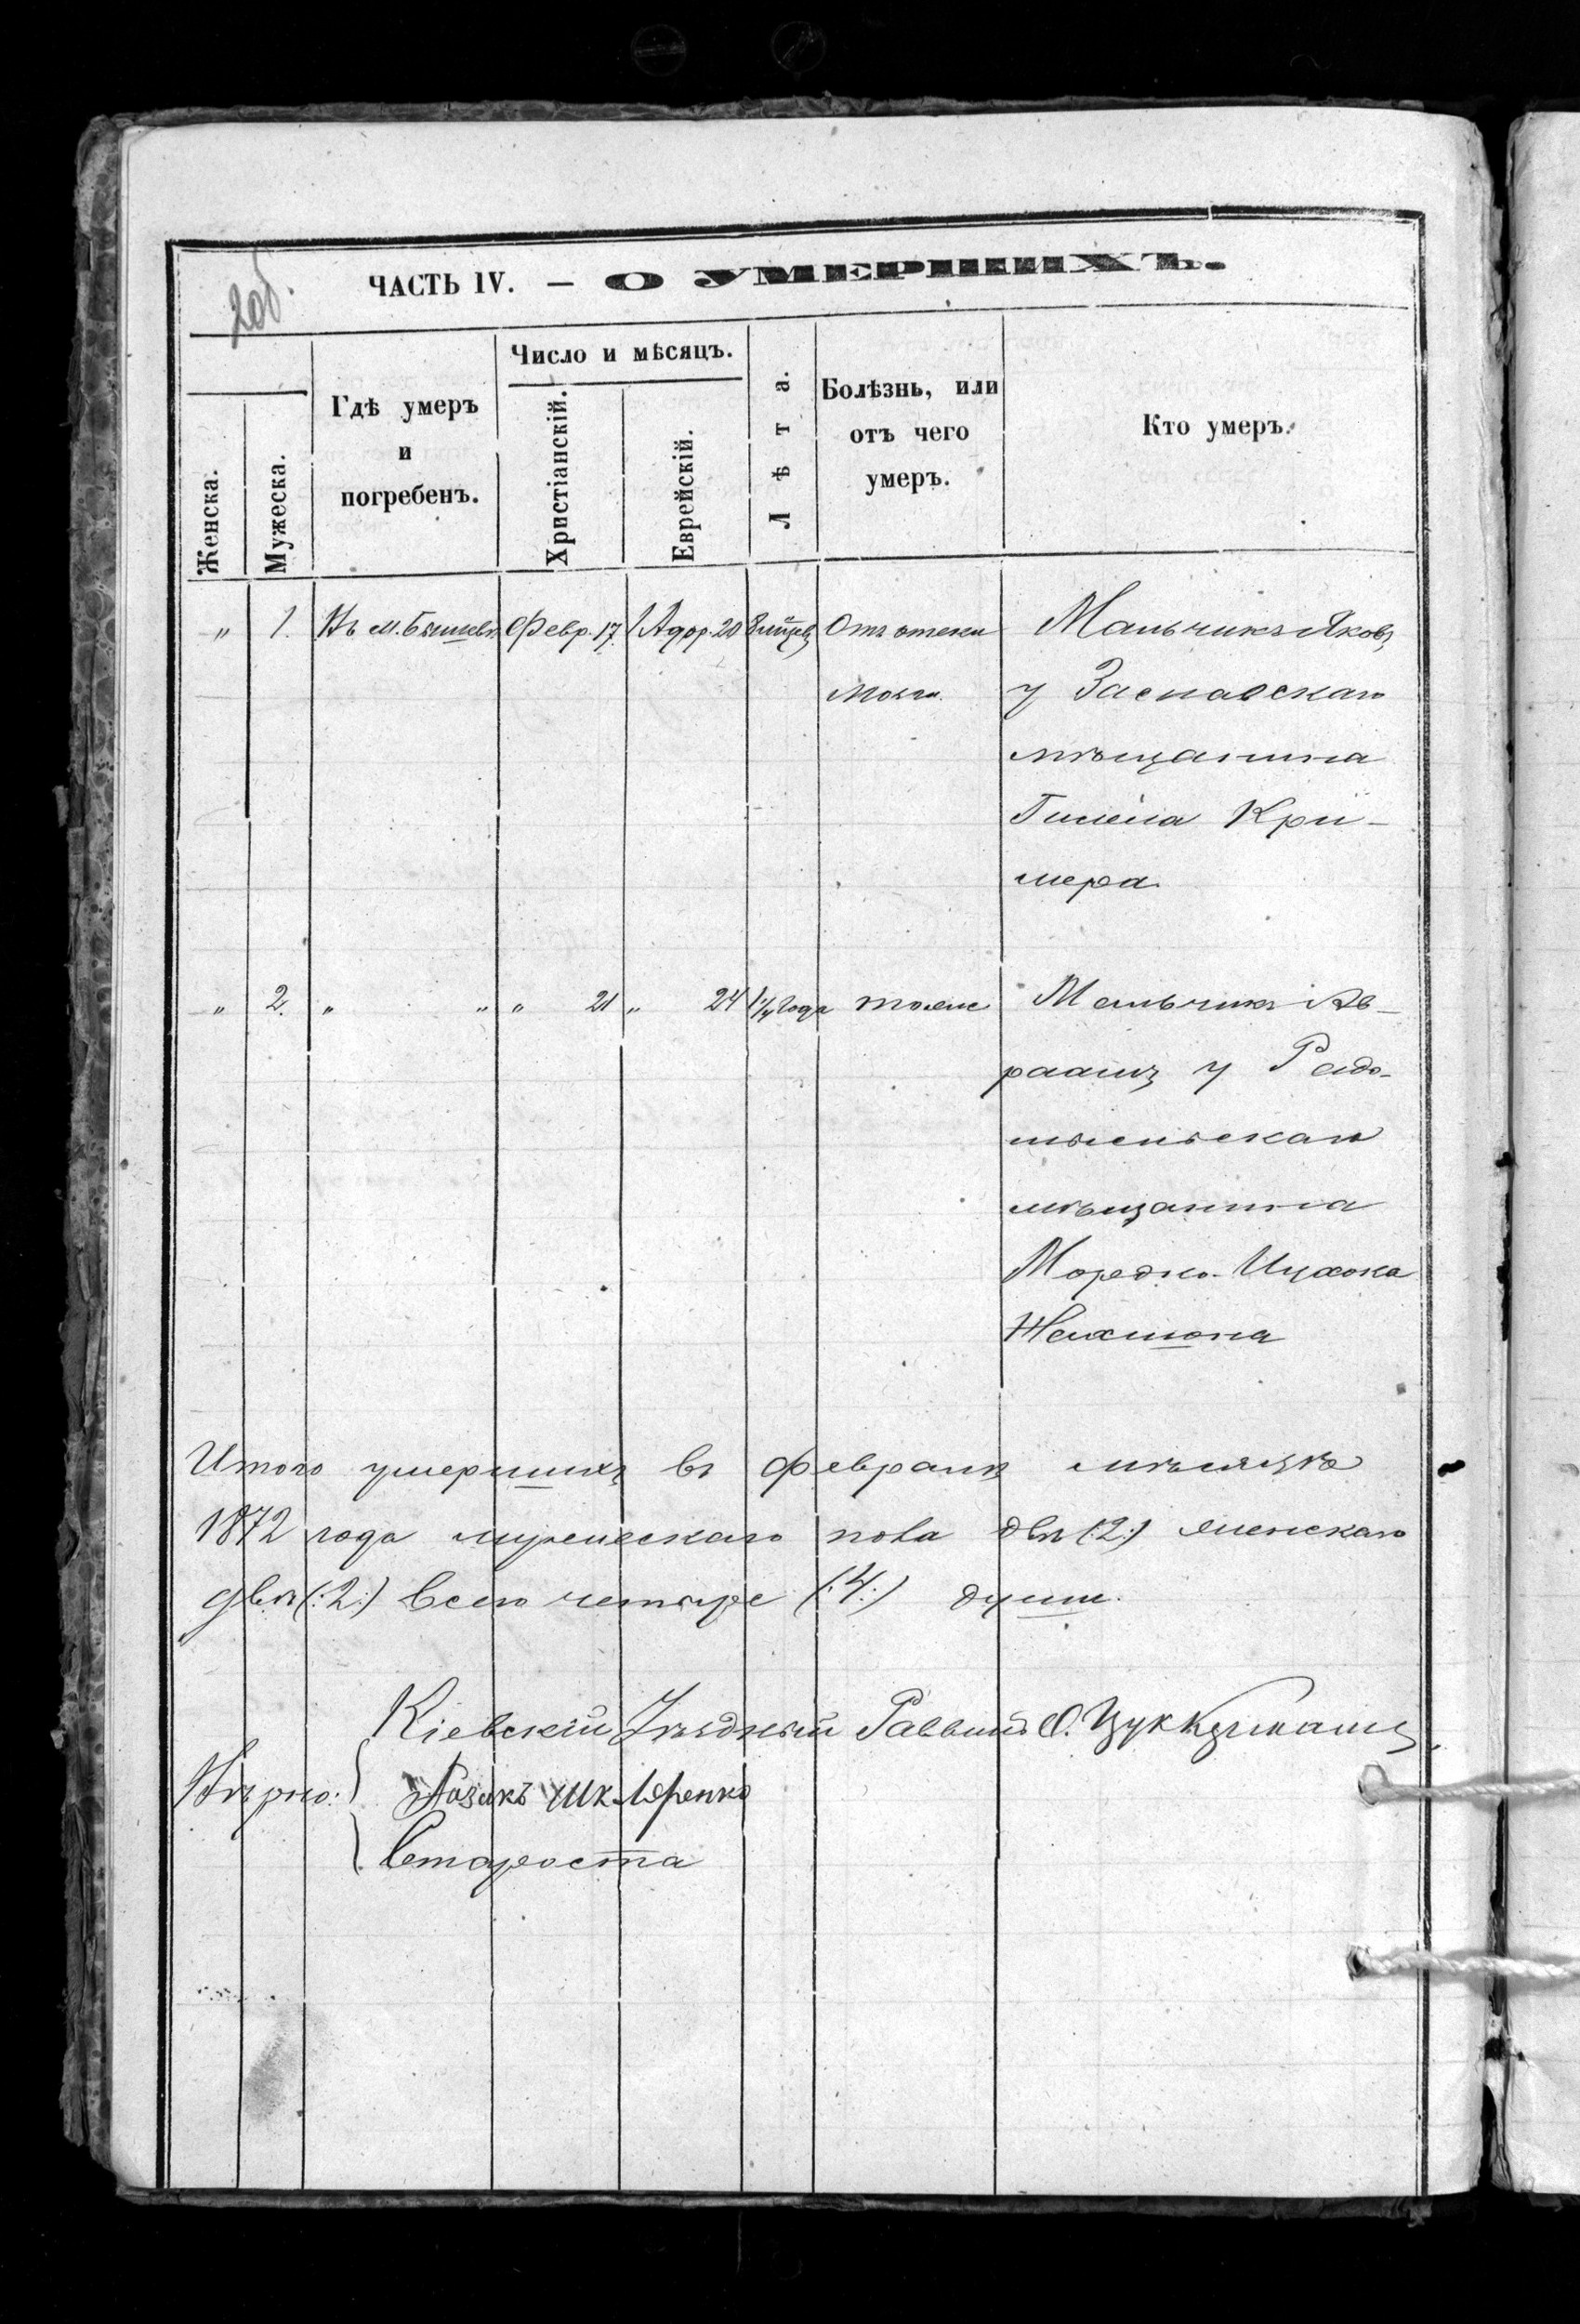 20об.
ЧАСТЬ IV. — О УМЕРШИХЪ.
Женска.
Мужеска.
Гдѣ умеръ
и
погребенъ.
Число и мѣсяцъ.
Христіанскій.
Еврейскій.
Лѣта.
Болѣзнь, или
отъ чего
умеръ.
Кто умеръ.
„ 1. Въ м. Бышевѣ Февр. 17. 1 Адор. 20 Отъ отека Мальчикъ Яковъ
мозга. у Заславскаго
мѣщанина
Гилела Кри-
мера.
„ 2. „ „ „ 21 „ 24 1¼ года тоже Мальчикъ Ав-
раамъ у Радо-
мысльскаго
мѣщанина
Мордко-Ицхока
Нахшона
Итого умершихъ въ февралѣ мѣсяцѣ
1872 года мужескаго пола двѣ (:2:) женскаго
двѣ (:2:) всего четыре (:4:) души.
Кіевскій Уѣздный Раввинъ О. Цуккерманъ
Вѣрно:
Староста